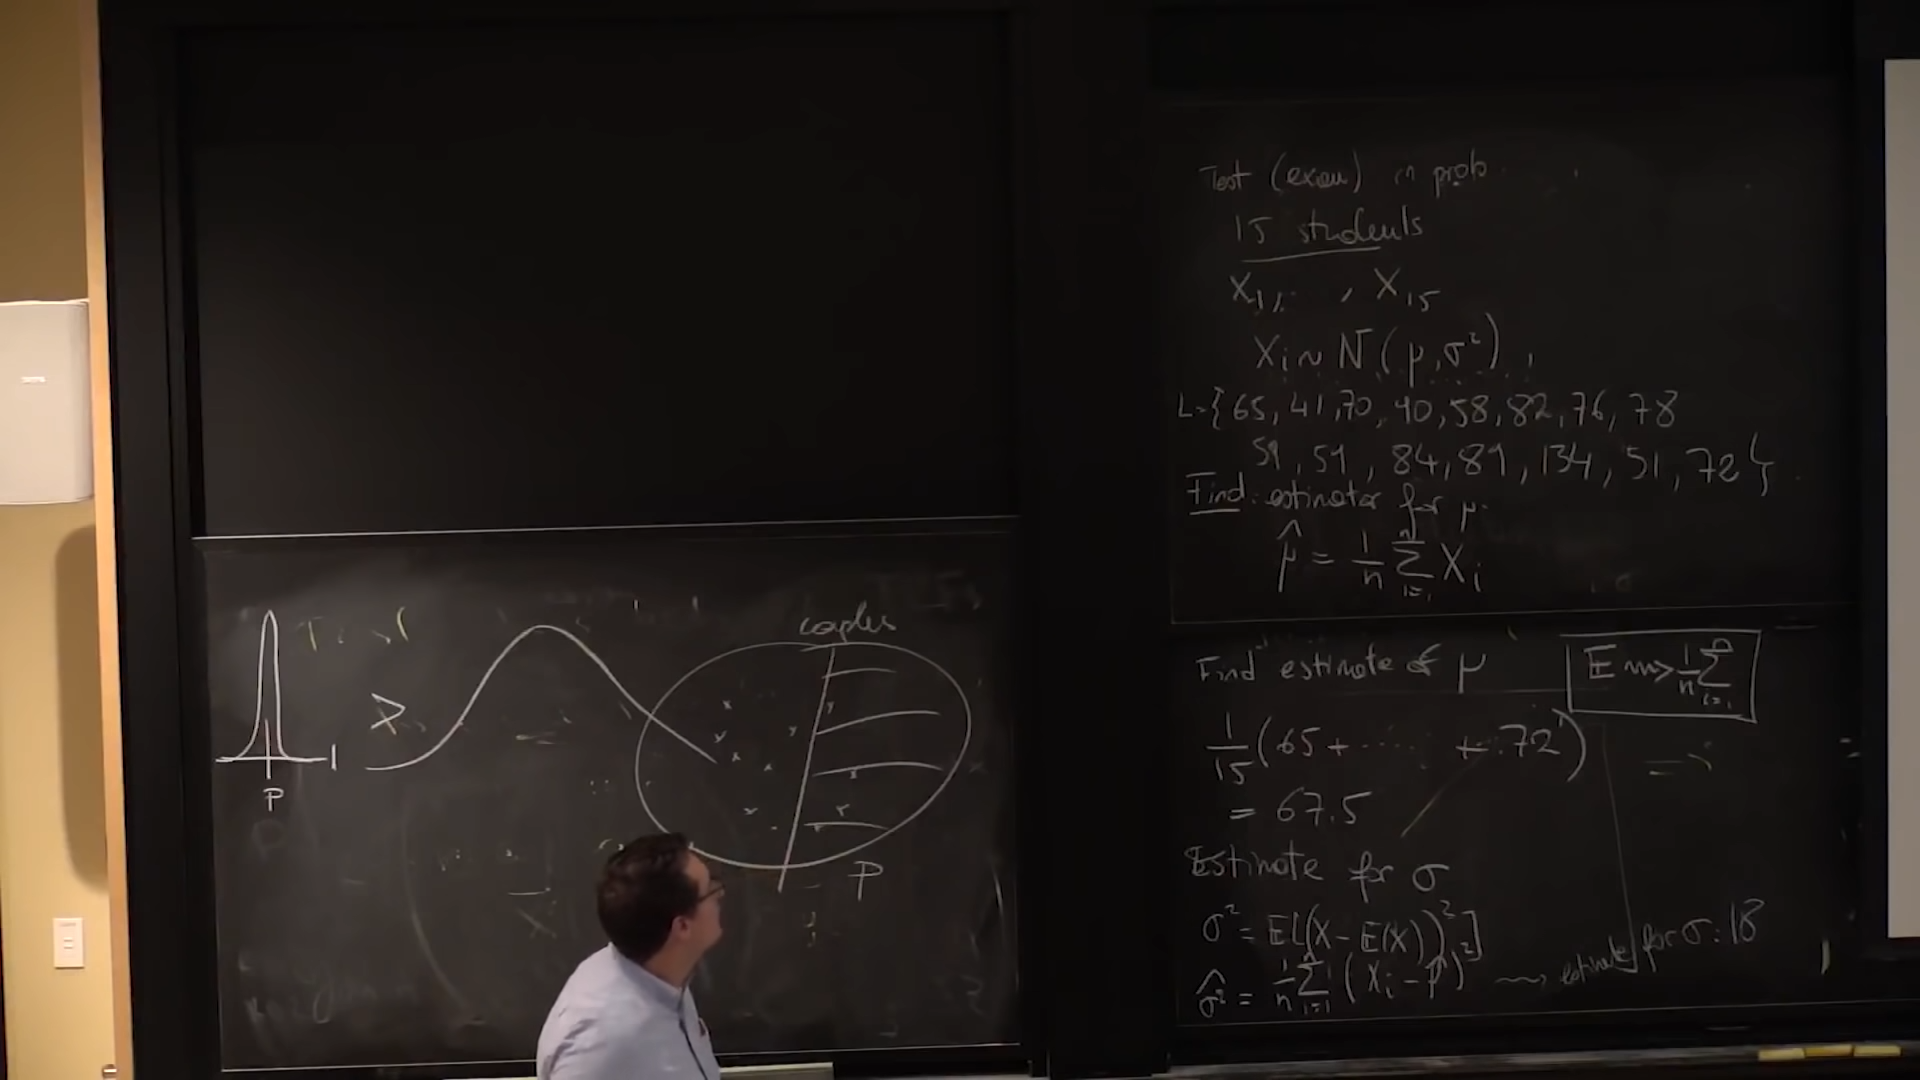 couples
>
p
P
Test (exam) in prob.
15 students
X₁, , X₁₅
Xᵢ ~ N(μ, σ²),
L={65, 41, 70, 90, 58, 82, 76, 78
59, 59, 84, 89, 134, 51, 72}
Find: estimator for μ.
μ̂ = 1/n Σᵢ₌₁ⁿ Xᵢ
Find estimate of μ
E ⇝ 1/n Σᵢ₌₁ⁿ
1/15 (65 + ..... + 72)
= 67.5
Estimate for σ
σ² = E[(X - E(X))²]
σ̂² = 1/n Σᵢ₌₁ⁿ (Xᵢ - μ̂)² ⇝ estimate for σ: 18